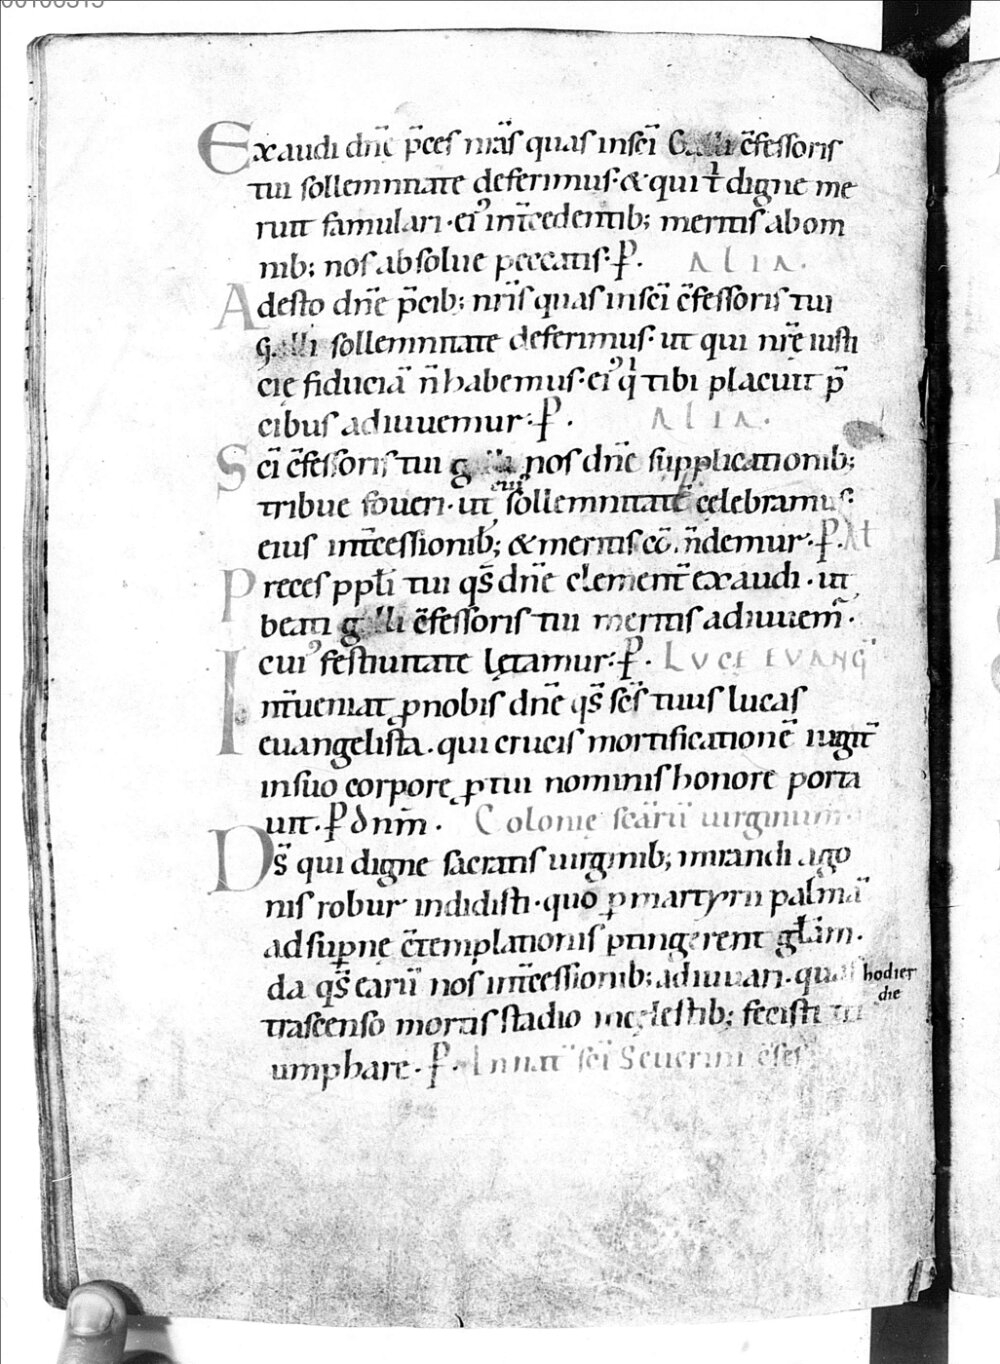 Exaudi dn̄e p̄ces nr̄as quas in sc̄i Galli c̄fessoris
tui sollemnitate deferimus· & qui t̄ digne me
ruit famulari· ei᾽ int̄cedentib; meritis ab om
nib; nos absolue peccatis· P̄. ALIA.
Adesto dn̄e p̄cib; nr̄is quas in sc̄i c̄fessoris tui
galli sollemnitate deferimus· ut qui nr̄ę iusti
cię fiduciā n̄ habemus· ei᾽ q̇ tibi placuit p̄
cibus adiuuemur· P̄. ALIA.
Sc̄i c̄fessoris tui galli nos dn̄e supplicationib;
cui᾽
tribue foueri· ut sollemnitatē celebramus·
eius int̄cessionib; & meritis cō.n̄demur· P̄. Al̄t
Preces ppl̄i tui qs̄ dn̄e clement̄ exaudi· ut
beati galli c̄fessoris tui meritis adiuuem̃·
cui᾽ festiuitate lętamur· P̄. LVCĘ EVANG̅
Int̄ueniat ꝓ nobis dn̄e qs̄ sc̄s tuus lucas
euangelista· qui crucis mortificationē iugit̄
in suo corpore ꝓ tui nominis honore porta
uit· P̄ dnm̄· Colonię sc̄arū uirginum·
Ds̄ qui digne sacratis uirginib; mirandi ago
nis robur indidisti· quo ꝑ martyrii palmā
ad sup̄nę c̄templationis ꝑtingerent gl̄am·
da qs̄ earū nos int̄cessionib; adiuuari· quas hodier
die
trascenso mortis stadio in cęlestib; fecisti tri
umphare· P̄. In nat̄ sc̄i Seuerini c̄fes̄